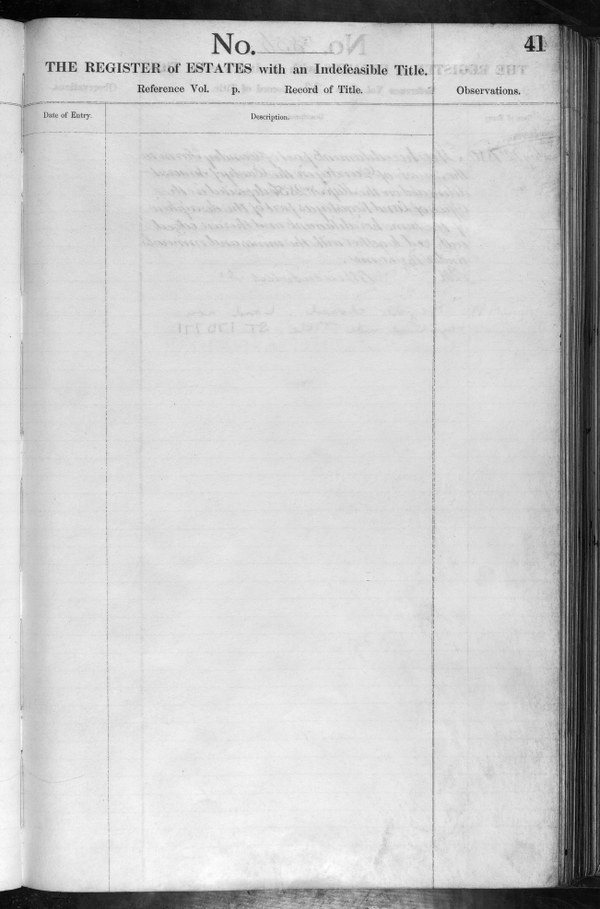 No. 41
THE REGISTER of ESTATES with an Indefeasible Title.
Reference Vol. p. Record of Title. Observations.
Date of Entry. Description.